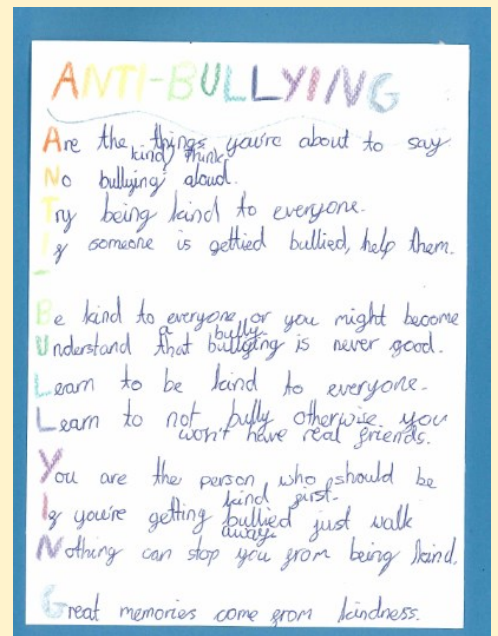 ANTI-BULLYING
Are the things you're about to say
kind, think
No bullying aloud.
Try being kind to everyone.
If someone is gettied bullied, help them.
Be kind to everyone, or you might become
a bully.
Understand that bullying is never good.
Learn to be kind to everyone.
Learn to not bully otherwise you
won't have real friends.
You are the person who should be
kind first.
If you're getting bullied just walk
away.
Nothing can stop you from being kind.
Great memories come from kindness.